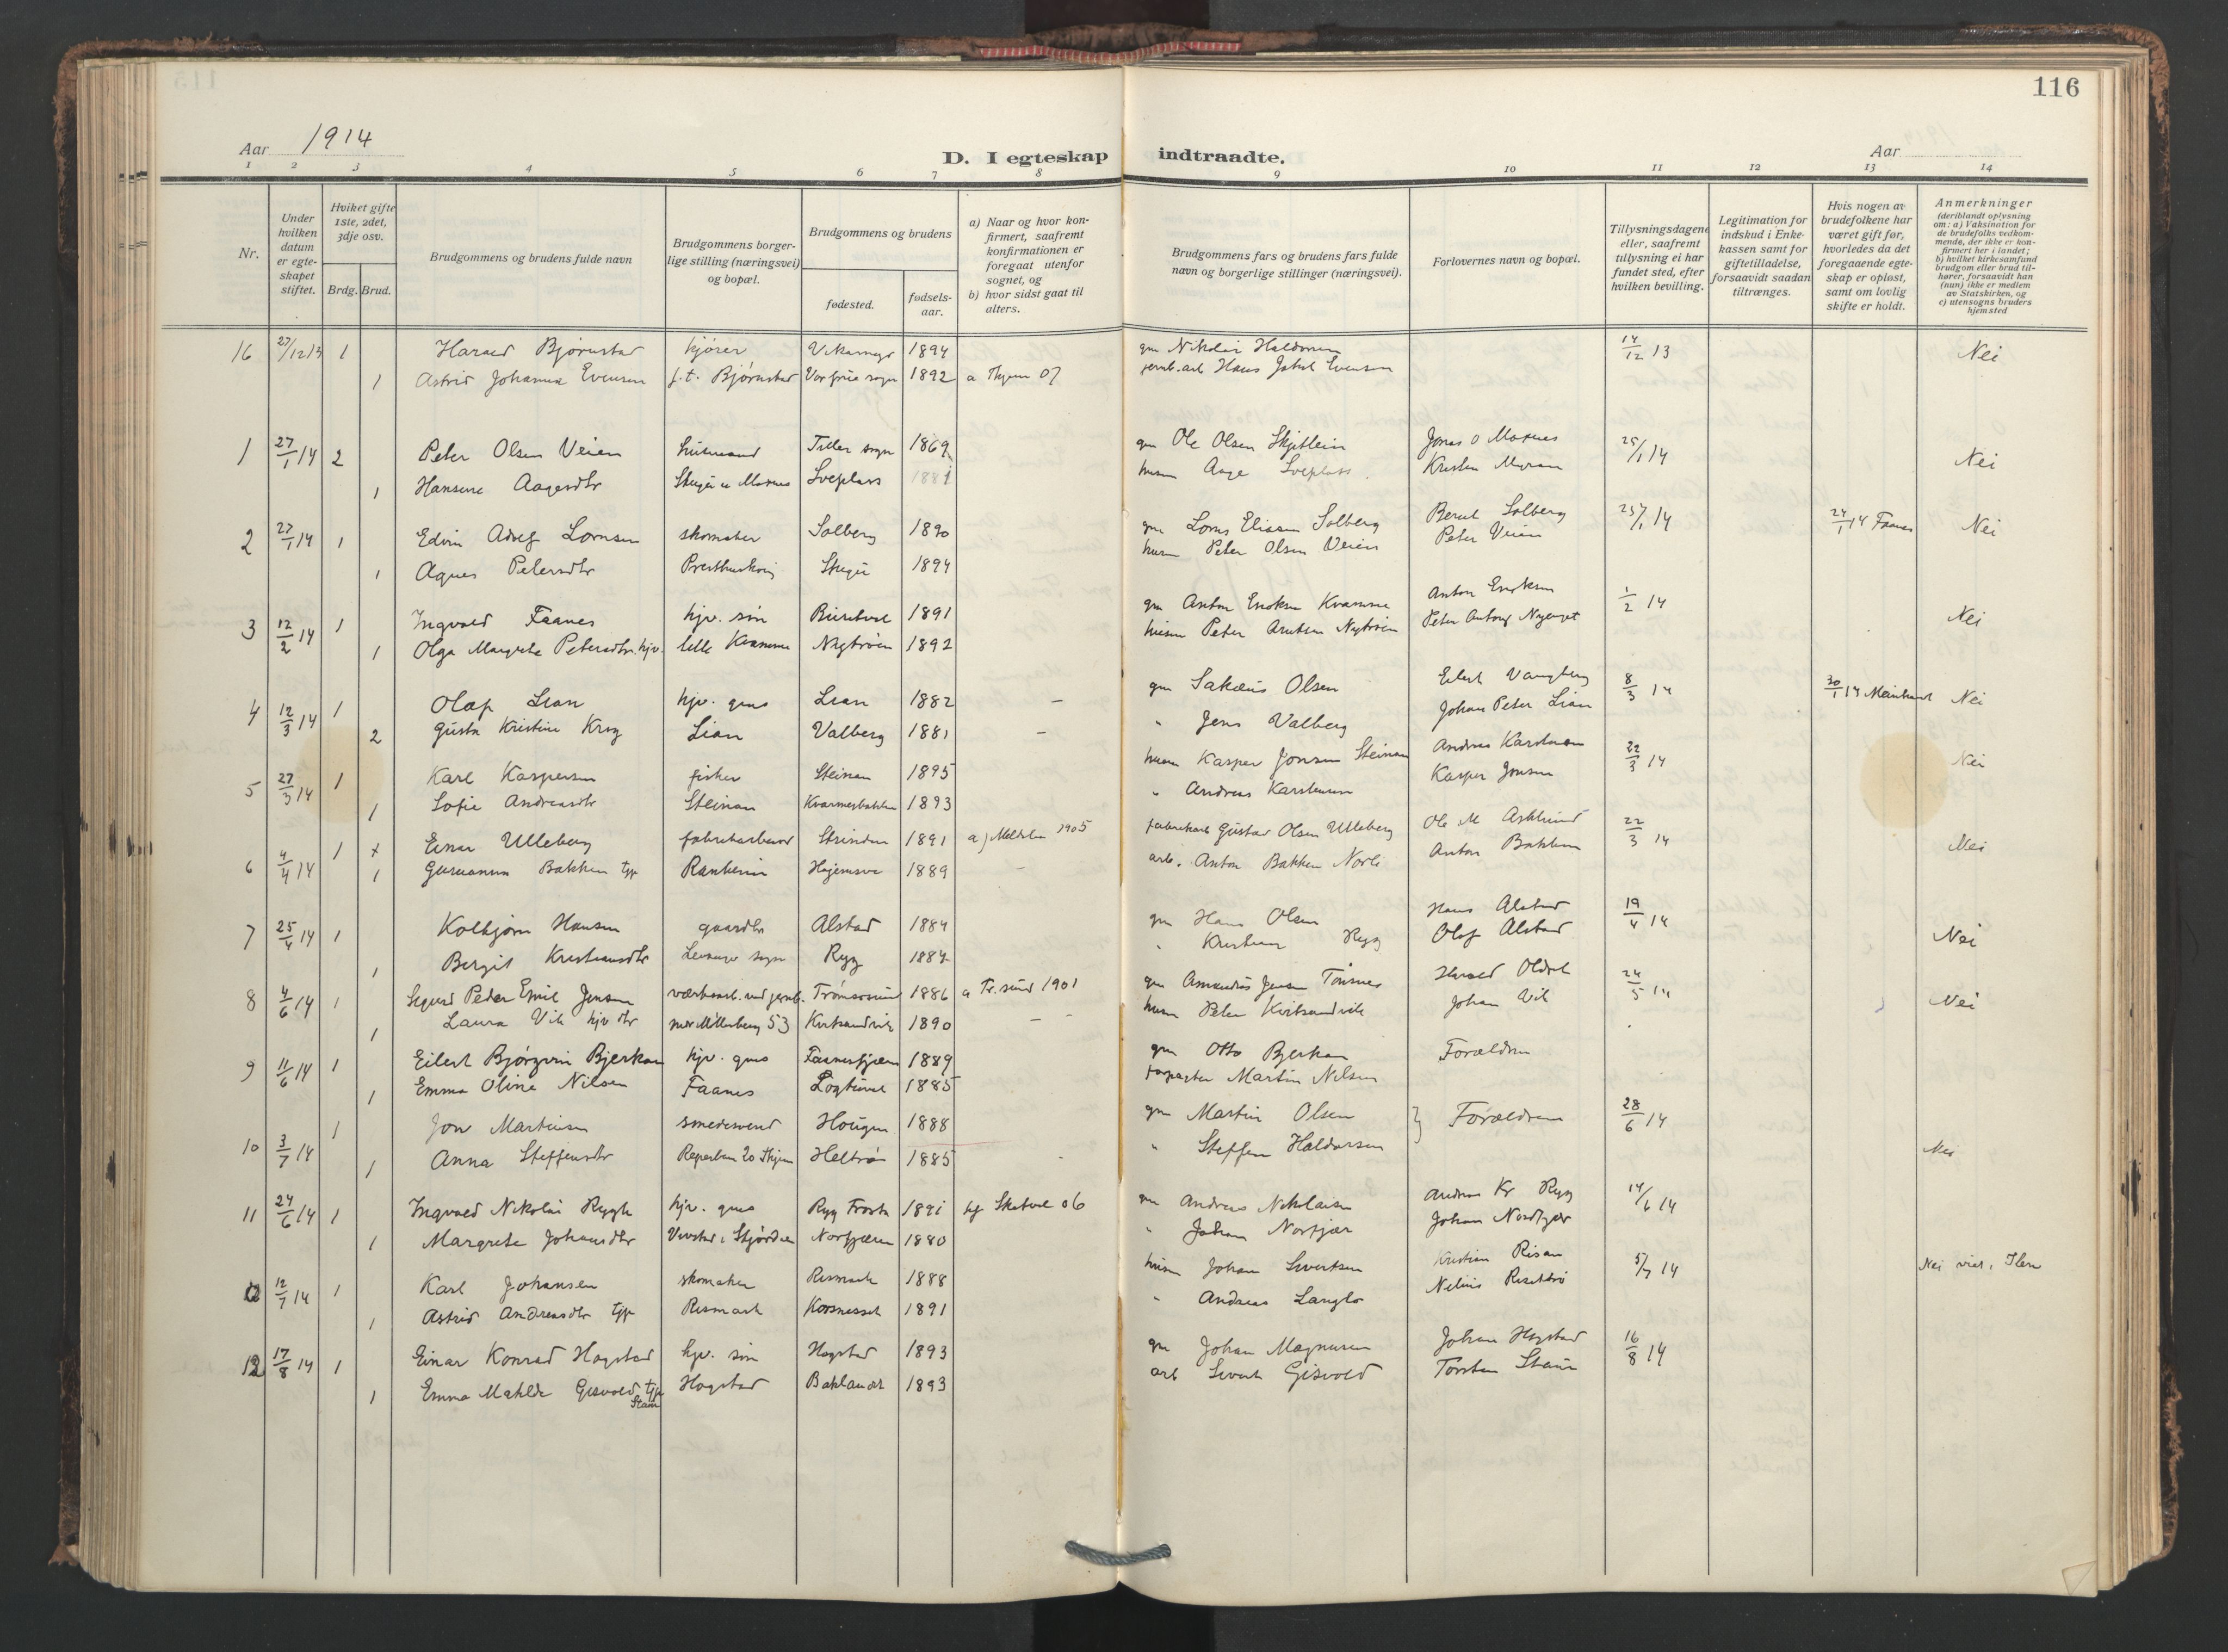 116
Aar 1914
D. I egteskap indtraadte.
Aar
1 2 3 4 5 6 7 8 9 10 11 12 13 14
Nr.
Under hvilken datum er egteskapet stiftet.
Hviket gifte 1ste, 2det, 3dje osv.
Brdg. Brud.
Brudgommens og brudens fulde navn
Brudgommens borgerlige stilling (næringsvei) og bopæl.
Brudgommens og brudens
fødested.
fødselsaar.
a) Naar og hvor konfirmert, saafremt konfirmationen er foregaat utenfor sognet, og
b) hvor sidst gaat til alters.
Brudgommens fars og brudens fars fulde navn og borgerlige stillinger (næringsvei).
Forlovernes navn og bopæl.
Tillysningsdagene eller, saafremt tillysning ei har fundet sted, efter hvilken bevilling.
Legitimation for indskud i Enkekassen samt for giftetilladelse, forsaavidt saadan tiltrænges.
Hvis nogen av brudefolkene har været gift før, hvorledes da det foregaaende egteskap er opløst, samt om lovlig skifte er holdt.
Anmerkninger (deriblandt oplysning om: a) Vaksination for de brudefolks vedkommende, der ikke er konfirmert her i landet; b) hvilket kirkesamfund brudgom eller brud tilhører, forsaavidt han (hun) ikke er medlem av Statskirken, og c) utensogns bruders hjemsted
16 27/12 13 1 Harald Bjørnstad kjører 1894 gm Nikolai Haldorsen 14/12 13 Nei
1 Astrid Johanna Evensen f.t. Bjørnstad Vor frue sogn 1892 a 07 jernb.arb Hans Jakob Evensen
1 27/1 14 2 Peter Olsen Veien husmand Tiller sogn 1869 gm Ole Olsen Skjetlein Jonas O Moxnes 25/1 14 Nei
1 Hansine Aagesdtr Sveplass 1881 husm Aage Sveplass Kristen Myran
2 27/1 14 1 Edvin Adolf Lornsen skomaker Solberg 1890 gm Lorns Eliasen Solberg Bernt Solberg 25/1 14 24/1 14 Faanes Nei
1 Agnes Petersdtr 1894 husm Peter Olsen Veien Peter Veien
3 12/2 14 1 Ingvald Faanes hjv. søn 1891 gm Anton Enoksen Kvamme Anton Enoksen 1/2 14 Nei
1 Olga Margrete Petersdtr. hjv. lille Kvamme Nygtrøen 1892 husm Peter Arntsen Nytrøen Peter
4 12/3 14 1 Olaf Lian hjv. gms Lian 1882 — gm Sakæus Olsen Eilert Vangberg 8/3 14 30/1 14 Nei
2 Gusta Kristine Lian Valberg 1881 — " Jens Valberg Johan Peter Lian
5 27/3 14 1 Karl Kaspersen fisker Steinan 1895 husm Kasper Jonsen Steinan Andreas Karstensen 22/3 14 Nei
1 Sofie Andreasdtr Steinan 1893 " Andreas Karstensen Kasper Jonsen
6 4/4 14 1 + Einar Ulleberg fabrikarbeid Strinden 1891 a) 1905 fabrikarb Gustav Olsen Ulleberg Ole M 22/3 14 Nei
1 Bakken tjp Ranheim 1889 — arb. Anton Bakken Anton Bakken
7 25/4 14 1 Kolbjørn Hansen gaardbr Alstad 1884 gm Hans Olsen Hans Alstad 19/4 14 Nei
1 Bergit Kristiansdtr sogn Rygg 1884 " Kristian Rygg Olaf Alstad
8 4/6 14 1 Sigurd Peder Emil Jensen Tromsøsund 1886 a Tr. sund 1901 gm Amandus Jensen 24/5 14 Nei
1 Laura Vik hjv dtr Møllenberg 53 Kvitsandvik 1890 — husm Peter Kvitsandvik Johan Vik
9 11/6 14 1 Eilert Bjørgvin Bjerkan hjv. gms 1889 gm Otto Bjerkan Forældrene
1 Emma Oline Nilsen Faanes 1885 forpagter Martin Nilsen
10 3/7 14 1 Jon Martinsen smedesvend Hougen 1888 gm Martin Olsen } Forældrene 28/6 14 Nei
1 Anna Steffensdtr 1885 " Steffen Haldorsen
11 24/6 14 1 Ingvald Nikolai Rygh hjv. gms Rygg Frosta 1891 Skatval 06 gm Andreas Nikolaisen Andreas Kr Rygg 14/6 14
1 Margrete Johansdtr 1880 " Johan Norfjær Johan
12/7 14 1 Karl Johansen skomaker Rismark 1888 husm Johan Sivertsen Kristian Risan 5/7 14 Nei
1 Astrid Andreasdtr tjp Rismark Korsnesset 1891 " Andreas Langlo
12 17/8 14 1 Einar Konrad Hogstad hjv. søn Hogstad 1893 gm Johan Magnusen Johan Hogstad 16/8 14
1 Emma Matilde Gisvold tjp Staur Hogstad Baklandet 1893 arb Sivert Gisvold Torsten Staur